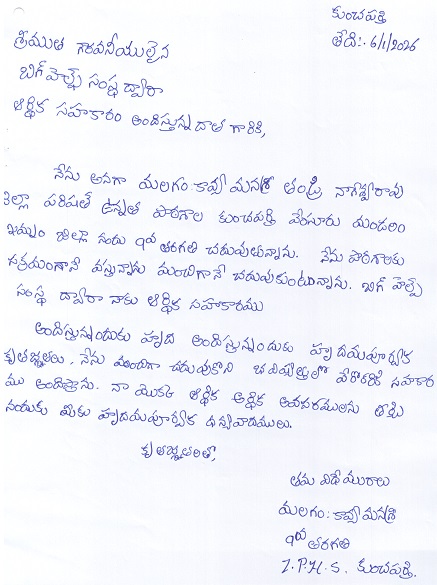 కుంచపర్తి
తేది:- 6/1/2026
శ్రీయుత గౌరవనీయులైన
బిగ్ హెల్ప్ సంస్థ ద్వారా
ఆర్థిక సహకారం అందిస్తున్న దాత గారికి,
నేను అనగా మలగం: కావ్య మనశ్రీ తండ్రి నాగేశ్వరావు
జిల్లా పరిషత్ ఉన్నత పాఠశాల కుంచపర్తి వేంసూరు మండలం
ఖమ్మం జిల్లా నందు 9వ తరగతి చదువుచున్నాను. నేను పాఠశాలకు
సక్రమంగానే వస్తున్నాను మంచిగానే చదువుకుంటున్నాను. బిగ్ హెల్ప్
సంస్థ ద్వారా నాకు ఆర్థిక సహాకారము
అందిస్తున్నందుకు హృది అందిస్తున్నందుకు హృదయపూర్వక
కృతజ్ఞతలు. నేను మంచిగా చదువుకొని భవిష్యత్తులో వేరొకరికి సహకార
ము అందిస్తాను. నా యొక్క ఆర్థిక ఆర్థిక అవసరములను తీర్చి
నందుకు మీకు హృదయపూర్వక ధన్యవాదములు.
కృతజ్ఞతలతో,
తమ విధేయురాలు
మలగం: కావ్య మనశ్రీ
9వ తరగతి
Z.P.H.S. కుంచపర్తి.